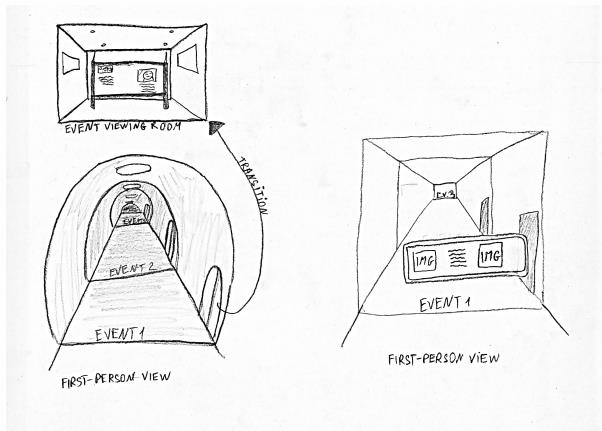 EVENT VIEWING ROOM
TRANSITION
EVENT
EVENT 2
EVENT 1
FIRST-PERSON VIEW
EV.3
IMG
IMG
EVENT 1
FIRST-PERSON VIEW